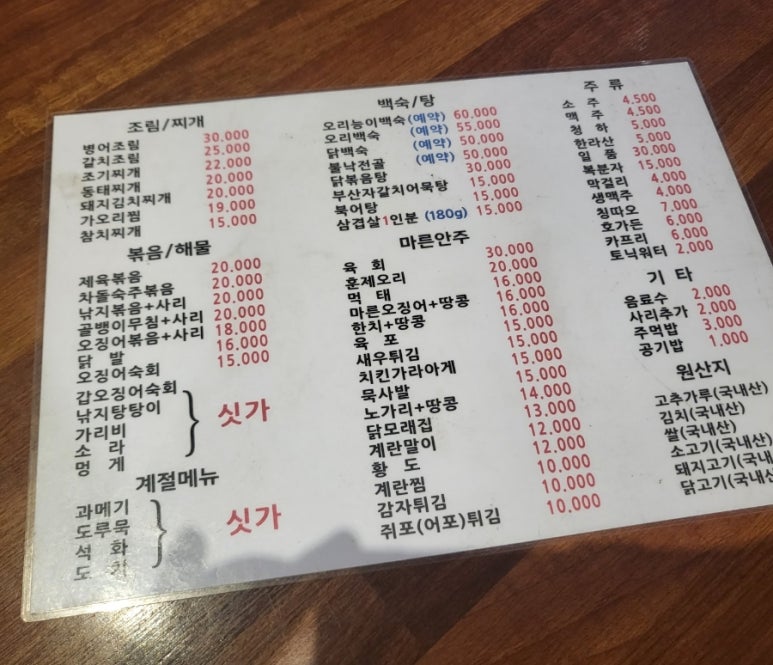 조림/찌개
병어조림 30.000
갈치조림 25.000
조기찌개 22.000
동태찌개 20.000
돼지김치찌개 20.000
가오리찜 19.000
참치찌개 15.000
볶음/해물
제육볶음 20.000
차돌숙주볶음 20.000
낚지볶음+사리 20.000
골뱅이무침+사리 20.000
오징어볶음+사리 18.000
닭 발 16.000
오징어숙회 15.000
갑오징어숙회
낚지탕탕이
가리비
소 라
멍 게
싯가
계절메뉴
과메기
도루묵
석 화
싯가
백숙/탕
오리능이백숙(예약) 60.000
오리백숙 (예약) 55.000
닭백숙 (예약) 50.000
불낙전골 (예약) 50.000
닭볶음탕 30.000
부산자갈치어묵탕 15.000
북어탕 15.000
삼겹살1인분 (180g) 15.000
마른안주
육 회 30.000
훈제오리 20.000
먹 태 16.000
마른오징어+땅콩 16.000
한치+땅콩 16.000
육 포 15.000
새우튀김 15.000
치킨가라아게 15.000
묵사발 15.000
노가리+땅콩 14.000
닭모래집 13.000
계란말이 12.000
황 도 12.000
계란찜 10.000
감자튀김 10.000
쥐포(어포)튀김 10.000
주 류
소 주 4.500
맥 주 4.500
청 하 5.000
한라산 5.000
일 품 30.000
복분자 15.000
막걸리 4.000
생맥주 4.000
칭따오 7.000
호가든 6.000
카프리 6.000
토닉워터 2.000
기 타
음료수 2.000
사리추가 2.000
주먹밥 3.000
공기밥 1.000
원산지
고추가루(국내산)
김치(국내산)
쌀(국내산)
소고기(국내산)
돼지고기(국내
닭고기(국내산